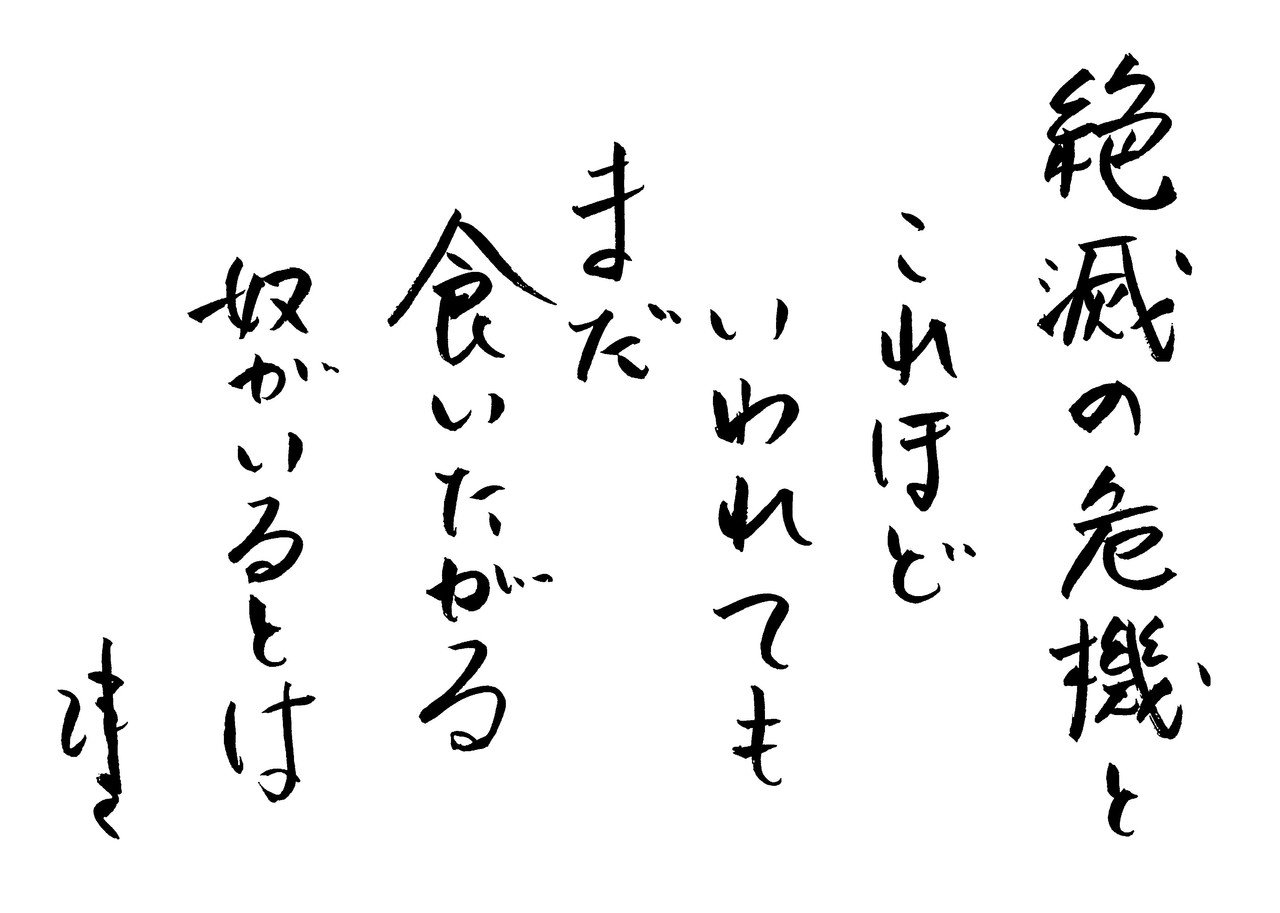 絶滅の危機と
これほど
いわれても
まだ
食いたがる
奴がいるとは